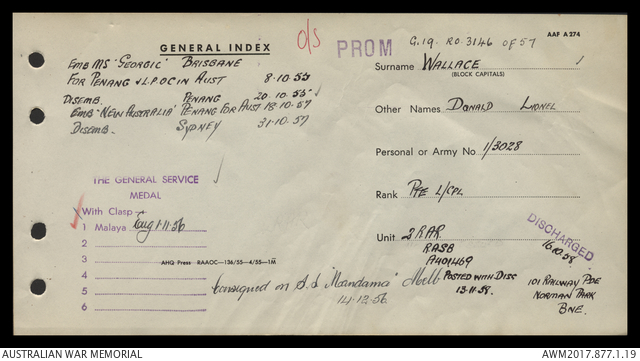 AAF A 274
GENERAL INDEX
O/S
PROM
G.19. RO 3146 OF 57
EMB MS "GEORGIC" BRISBANE
FOR PENANG V.L.P.OC IN AUST 8.10.55
DISEMB. PENANG 20.10.55
EMB "NEW AUSTRALIA" PENANG FOR AUST 18.10.57
DISEMB. SYDNEY 31.10.57
Surname WALLACE
(BLOCK CAPITALS)
Other Names DONALD LIONEL
Personal or Army No 1/3028
Rank PTE L/CPL
Unit 2RAR
RASB
A401469
DISCHARGED
16.10.58
THE GENERAL SERVICE
MEDAL
With Clasp
1 Malaya 1.11.56
2
3
4
5
6
AHQ Press RAAOC—136/55—4/55—1M
Consigned on S.S "Mandama"
14.12.56
POSTED WITH DISC
13.11.58.
101 RAILWAY PDE
NORMAN PARK
BNE.
AUSTRALIAN WAR MEMORIAL
AWM2017.877.1.19